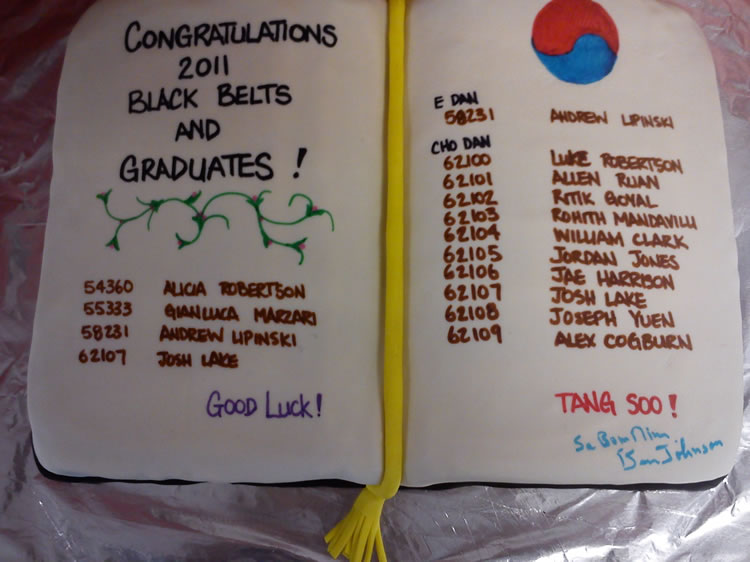 CONGRATULATIONS
2011
BLACK BELTS
AND
GRADUATES !
54360 ALICIA ROBERTSON
55333 GIANLUCA MARZARI
58231 ANDREW LIPINSKI
62107 JOSH LAKE
GOOD LUCK!
E DAN
58231 ANDREW LIPINSKI
CHO DAN
62100 LUKE ROBERTSON
62101 ALLEN RUAN
62102 RITIK GOYAL
62103 ROHITH MANDAVILLI
62104 WILLIAM CLARK
62105 JORDAN JONES
62106 JAE HARRISON
62107 JOSH LAKE
62108 JOSEPH YUEN
62109 ALEX COGBURN
TANG SOO !
Sa Bom Nim
Johnson